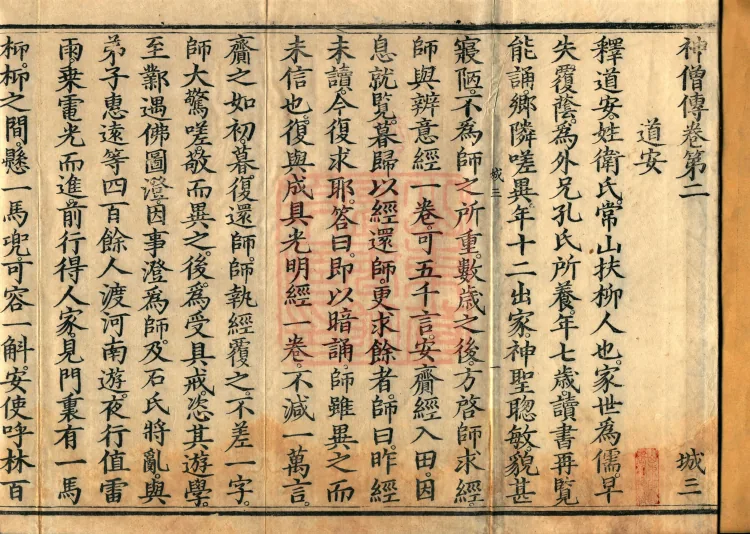 神僧傳卷第二 城三
道安
釋道安。姓衛氏。常山扶柳人也。家世為儒。早
失覆蔭。為外兄孔氏所養。年七歲讀書再覽
能誦。鄉隣嗟異。年十二出家。神聖聦敏貌甚
寢陋。不為師之所重。數歲之後。方啓師求經。
師與辨意經一卷。可五千言。安齎經入田。因
息就覧。暮歸以經還師。更求餘者。師曰昨經
未讀。今復求耶。荅曰。即以暗誦。師雖異之而
未信也。復與成具光明經一卷。不減一萬言。
齎之如初。暮復還師。師執經覆之。不差一字。
師大驚嗟敬而異之。後為受具戒。恣其遊學。
至鄴遇佛圖澄。因事澄為師。及石氏將亂。與
弟子惠遠等四百餘人渡河南遊。夜行值雷
雨。乗電光而進。前行得人家見門裏有一馬
枊。枊之間。懸一馬兜。可容一斛。安使呼林百